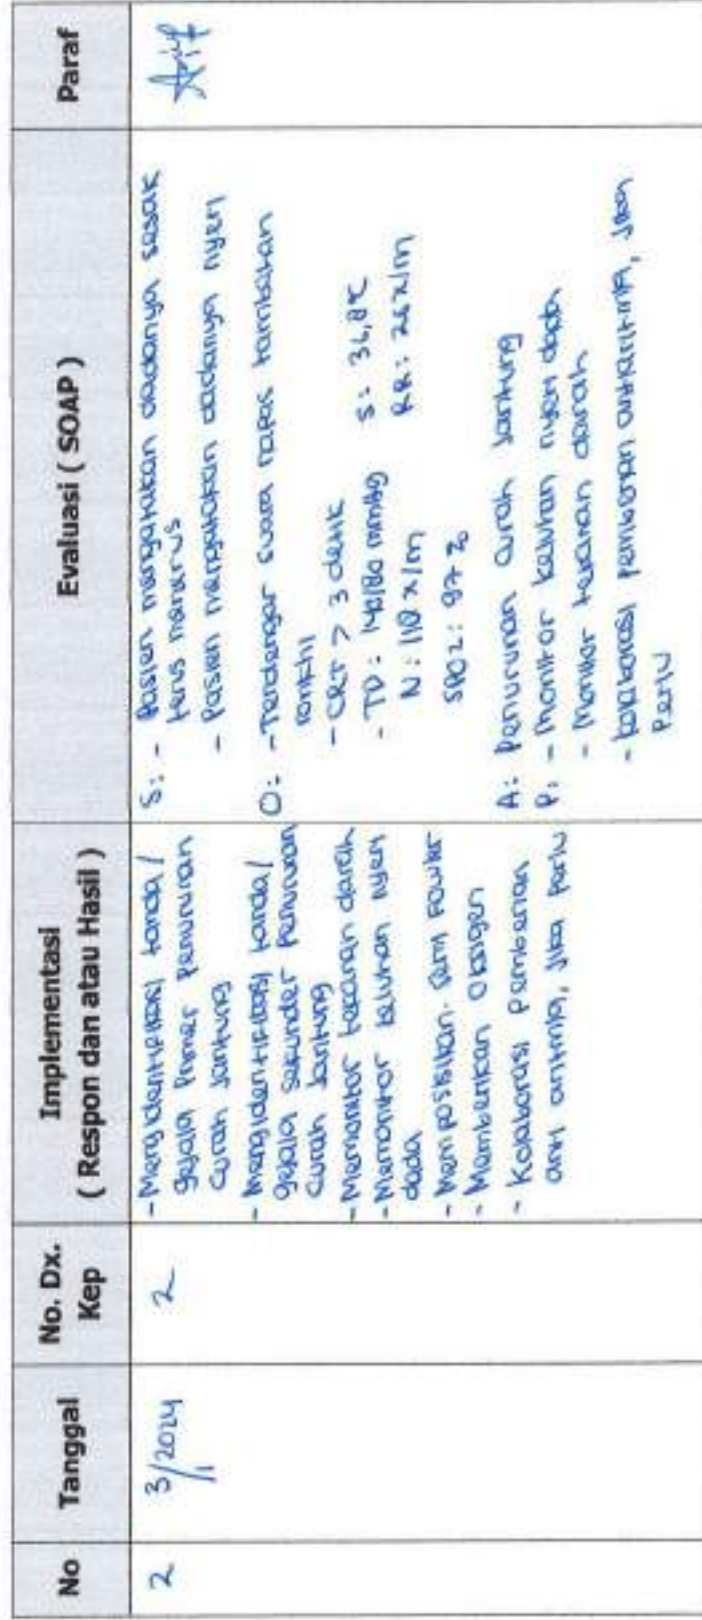 No Tanggal No. Dx. Kep Implementasi ( Respon dan atau Hasil ) Evaluasi ( SOAP ) Paraf
2 3/1 2024 2
- Mengidentifikasi tanda /
gejala primer penurunan
curah jantung
- Mengidentifikasi tanda/
gejala sekunder penurunan
curah jantung
- Memonitor tekanan darah
- Memonitor keluhan nyeri
dada
- Memposisikan semi fowler
- Memberikan oksigen
- Kolaborasi pemberian
anti aritmia, jika perlu
S: - Pasien mengatakan dadanya sesak
terus menerus
- Pasien mengatakan dadanya nyeri
O: - Terdengar suara napas tambahan
ronkhi
- CRT > 3 detik
- TD : 140/80 mmHg S : 36,8°C
N : 110 x/m RR : 26 x/m
SPO2 : 97 %
A: Penurunan curah jantung
P: - Monitor keluhan nyeri dada
- Monitor tekanan darah
- kolaborasi pemberian antiaritmia, jika
perlu
Arif